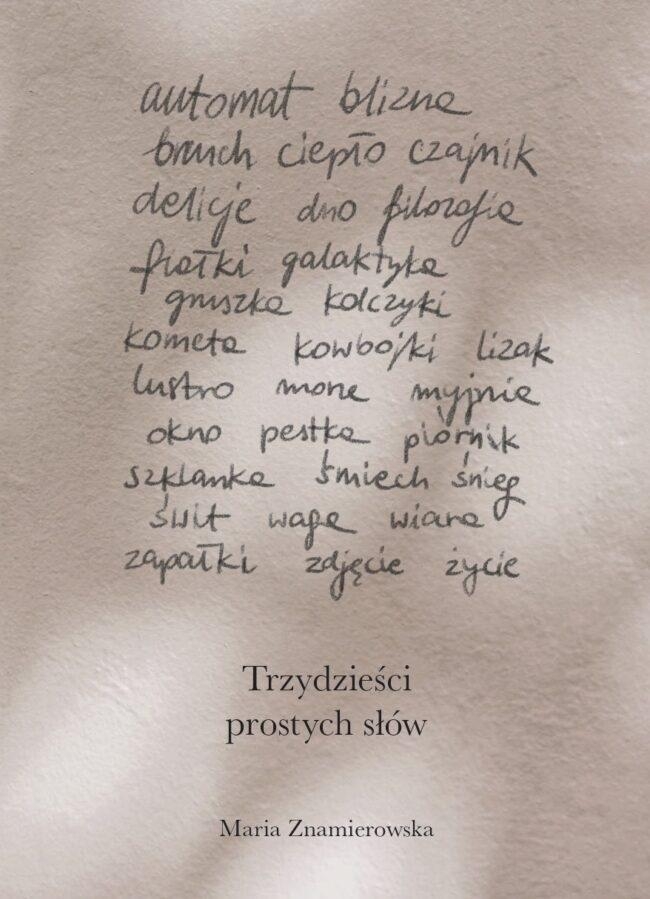 automat blizna
brzuch ciepło czajnik
delicje dno filozofia
fiołki galaktyka
gruszka kolczyki
kometa kowbojki lizak
lustro morze myjnia
okno pestka piórnik
szklanka śmiech śnieg
świt waga wiara
zapałki zdjęcie życie
Trzydzieści
prostych słów
Maria Znamierowska